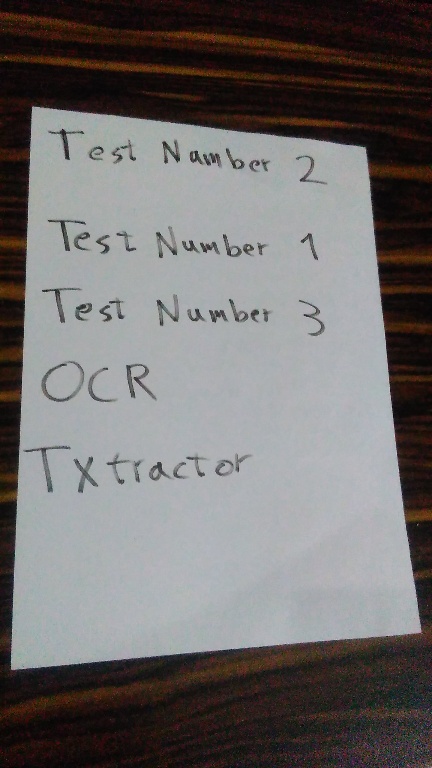 Test Number 2
Test Number 1
Test Number 3
OCR
Txtractor